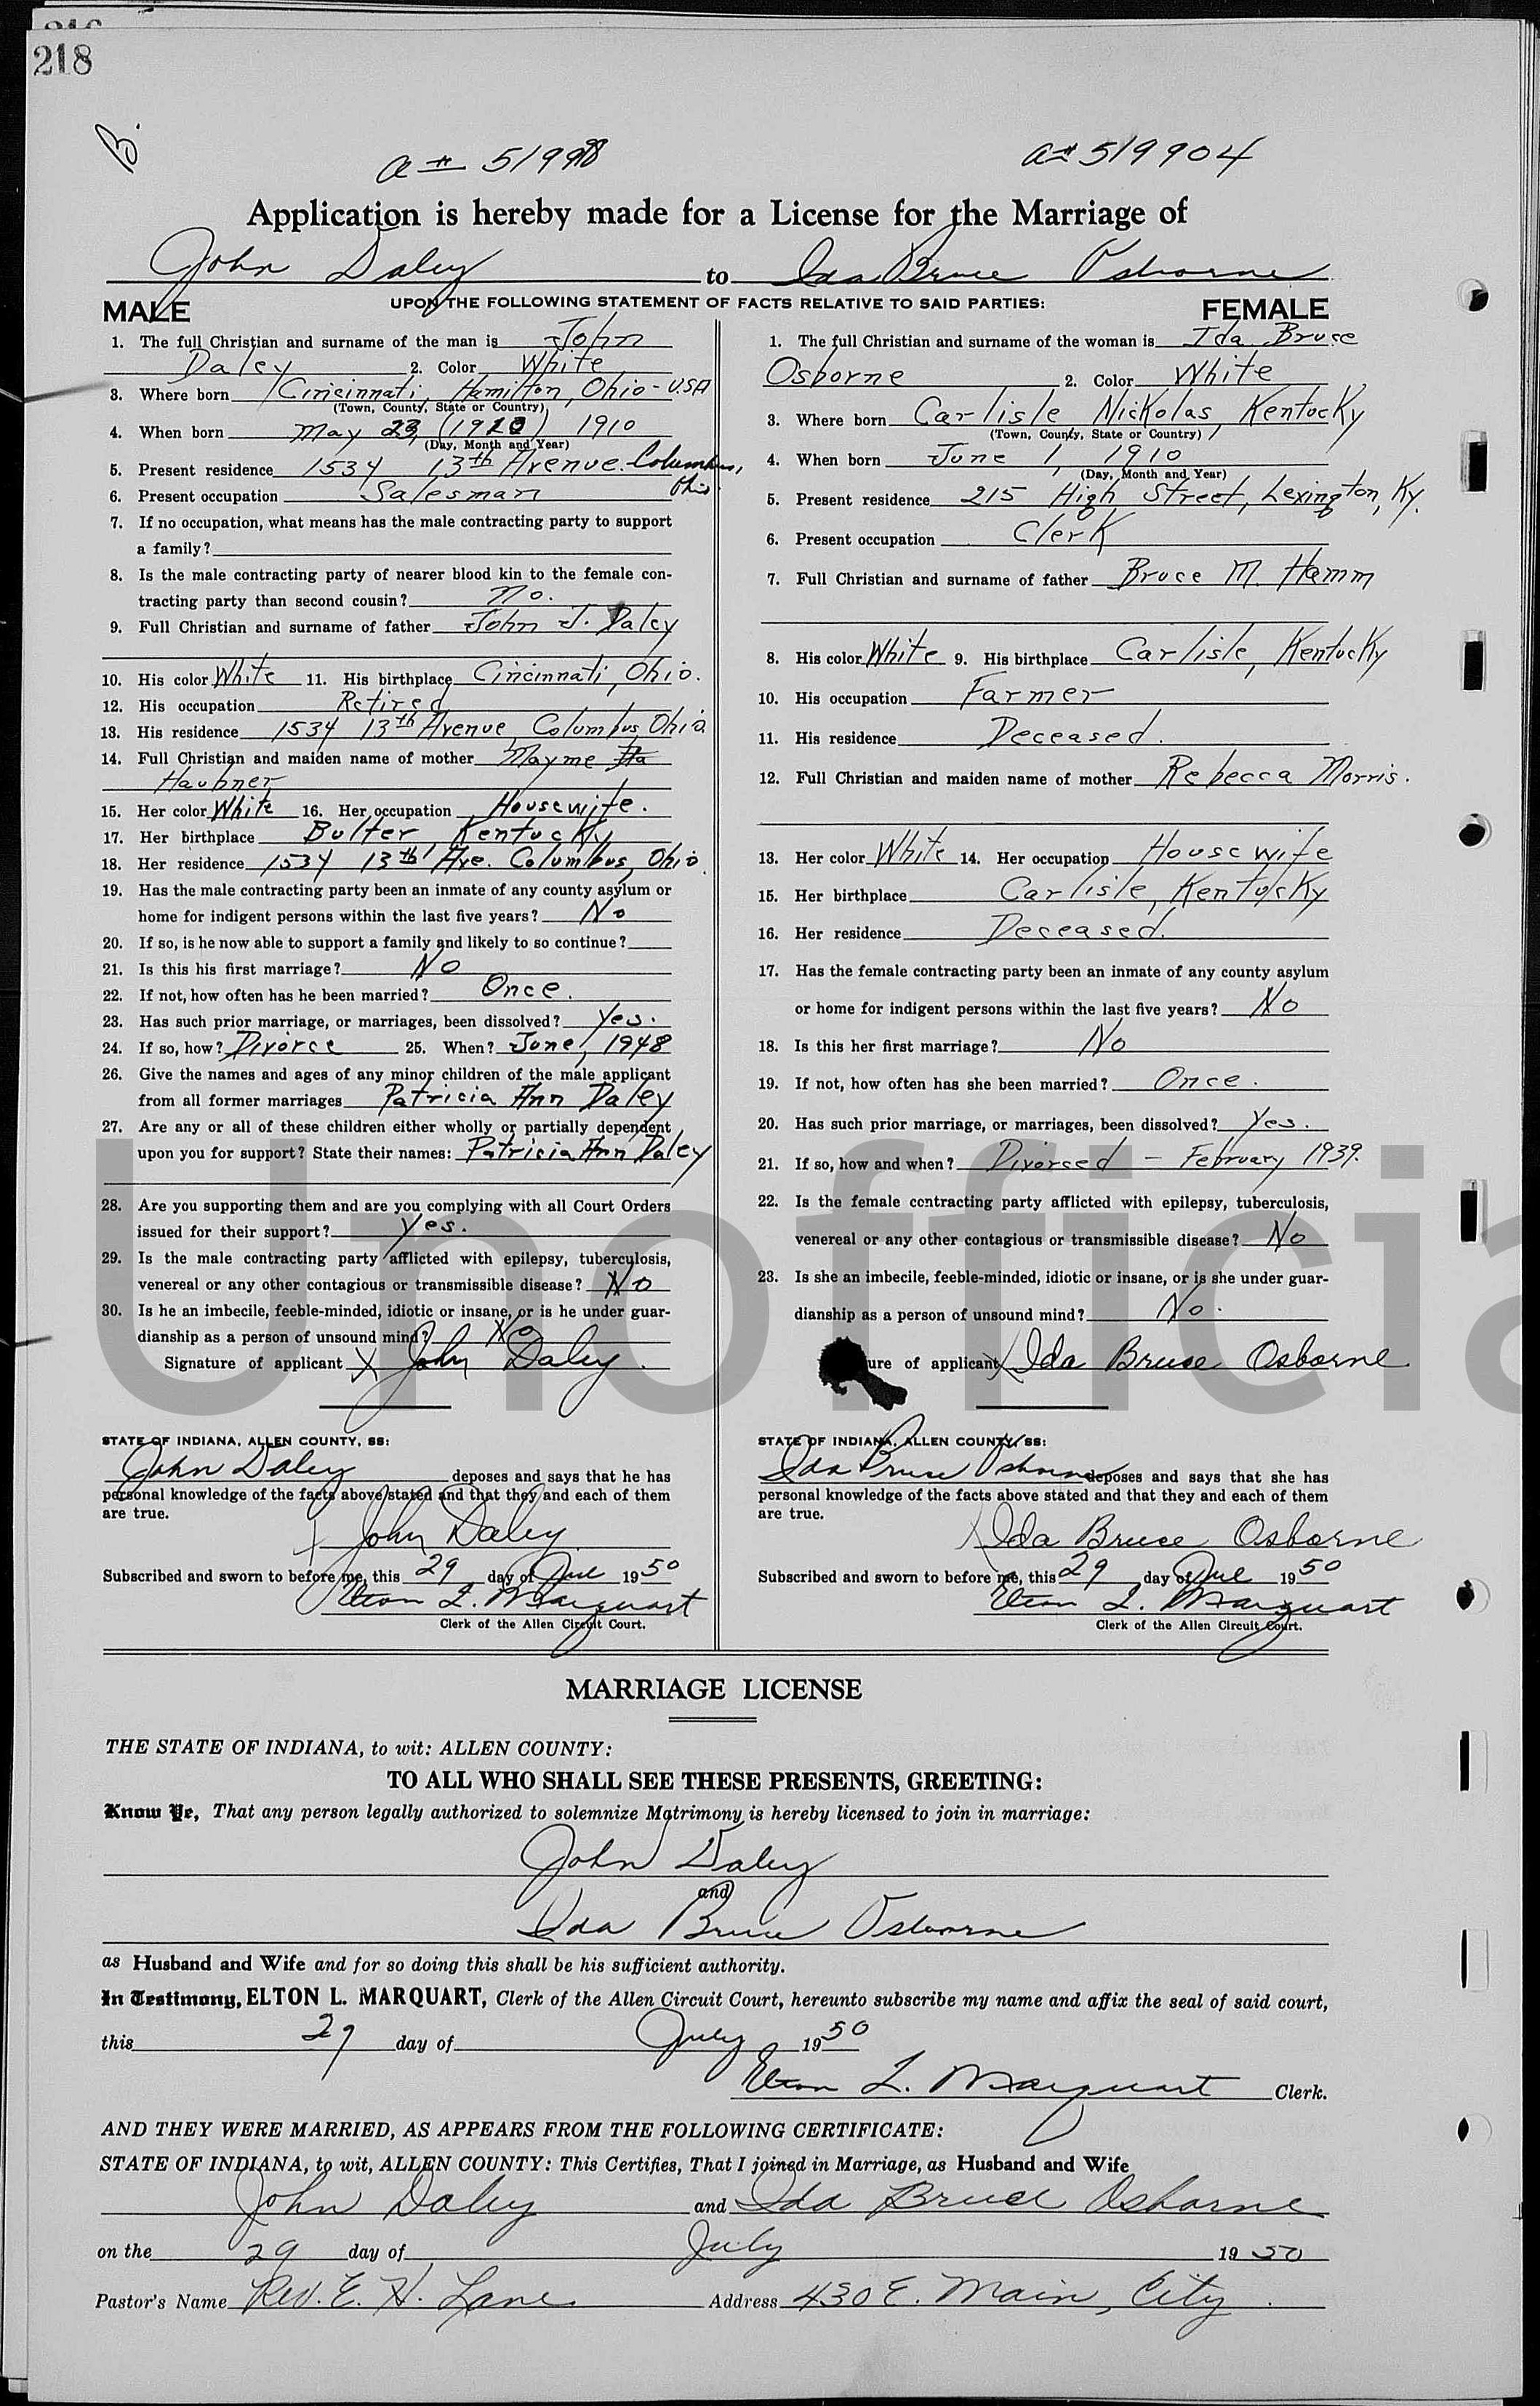 218
B.
a# 51998
a# 519904
Application is hereby made for a License for the Marriage of
John Daley to Ida Bruce Osborne
UPON THE FOLLOWING STATEMENT OF FACTS RELATIVE TO SAID PARTIES:
MALE
1. The full Christian and surname of the man is John
Daley 2. Color White
3. Where born Cincinnati, Hamilton, Ohio - USA
(Town, County, State or Country)
4. When born May 23, 1910
(Day, Month and Year)
5. Present residence 1534 13th Avenue. Columbus,
6. Present occupation Salesman Ohio.
7. If no occupation, what means has the male contracting party to support
a family?
8. Is the male contracting party of nearer blood kin to the female con-
tracting party than second cousin? No.
9. Full Christian and surname of father John J. Daley
10. His color White 11. His birthplace Cincinnati, Ohio.
12. His occupation Retired
13. His residence 1534 13th Avenue, Columbus, Ohio.
14. Full Christian and maiden name of mother Mayme Ha
Haubner
15. Her color White 16. Her occupation Housewife.
17. Her birthplace Bulter, Kentucky
18. Her residence 1534 13th Ave. Columbus, Ohio.
19. Has the male contracting party been an inmate of any county asylum or
home for indigent persons within the last five years? No
20. If so, is he now able to support a family and likely to so continue?
21. Is this his first marriage? No
22. If not, how often has he been married? Once.
23. Has such prior marriage, or marriages, been dissolved? Yes.
24. If so, how? Divorce 25. When? June, 1948
26. Give the names and ages of any minor children of the male applicant
from all former marriages Patricia Ann Daley
27. Are any or all of these children either wholly or partially dependent
upon you for support? State their names: Patricia Ann Daley
28. Are you supporting them and are you complying with all Court Orders
issued for their support? Yes.
29. Is the male contracting party afflicted with epilepsy, tuberculosis,
venereal or any other contagious or transmissible disease? No
30. Is he an imbecile, feeble-minded, idiotic or insane, or is he under guar-
dianship as a person of unsound mind? No
Signature of applicant X John Daley.
STATE OF INDIANA, ALLEN COUNTY, SS:
John Daley deposes and says that he has
personal knowledge of the facts above stated and that they and each of them
are true.
X John Daley
Subscribed and sworn to before me, this 29 day of Jul 1950
Elton L. Marquart
Clerk of the Allen Circuit Court.
FEMALE
1. The full Christian and surname of the woman is Ida Bruce
Osborne 2. Color White
3. Where born Carlisle, Nickolas, Kentucky
(Town, County, State or Country)
4. When born June 1, 1910
(Day, Month and Year)
5. Present residence 215 High Street, Lexington, Ky.
6. Present occupation Clerk
7. Full Christian and surname of father Bruce M. Hamm
8. His color White 9. His birthplace Carlisle, Kentucky
10. His occupation Farmer
11. His residence Deceased.
12. Full Christian and maiden name of mother Rebecca Morris.
13. Her color White 14. Her occupation Housewife
15. Her birthplace Carlisle, Kentucky
16. Her residence Deceased.
17. Has the female contracting party been an inmate of any county asylum
or home for indigent persons within the last five years? No
18. Is this her first marriage? No
19. If not, how often has she been married? Once.
20. Has such prior marriage, or marriages, been dissolved? Yes.
21. If so, how and when? Divorced - February 1939.
22. Is the female contracting party afflicted with epilepsy, tuberculosis,
venereal or any other contagious or transmissible disease? No
23. Is she an imbecile, feeble-minded, idiotic or insane, or is she under guar-
dianship as a person of unsound mind? No.
ure of applicant X Ida Bruce Osborne
STATE OF INDIANA, ALLEN COUNTY, SS:
Ida Bruce Osborne deposes and says that she has
personal knowledge of the facts above stated and that they and each of them
are true.
X Ida Bruce Osborne
Subscribed and sworn to before me, this 29 day of Jul 1950
Elton L. Marquart
Clerk of the Allen Circuit Court.
Unofficia
MARRIAGE LICENSE
THE STATE OF INDIANA, to wit: ALLEN COUNTY:
TO ALL WHO SHALL SEE THESE PRESENTS, GREETING:
Know Ye, That any person legally authorized to solemnize Matrimony is hereby licensed to join in marriage:
John Daley
and
Ida Bruce Osborne
as Husband and Wife and for so doing this shall be his sufficient authority.
In Testimony, ELTON L. MARQUART, Clerk of the Allen Circuit Court, hereunto subscribe my name and affix the seal of said court,
this 29 day of July 1950
Elton L. Marquart Clerk.
AND THEY WERE MARRIED, AS APPEARS FROM THE FOLLOWING CERTIFICATE:
STATE OF INDIANA, to wit, ALLEN COUNTY: This Certifies, That I joined in Marriage, as Husband and Wife
John Daley and Ida Bruce Osborne
on the 29 day of July 1950
Pastor's Name Rev. E. H. Lane Address 430 E. Main, City.